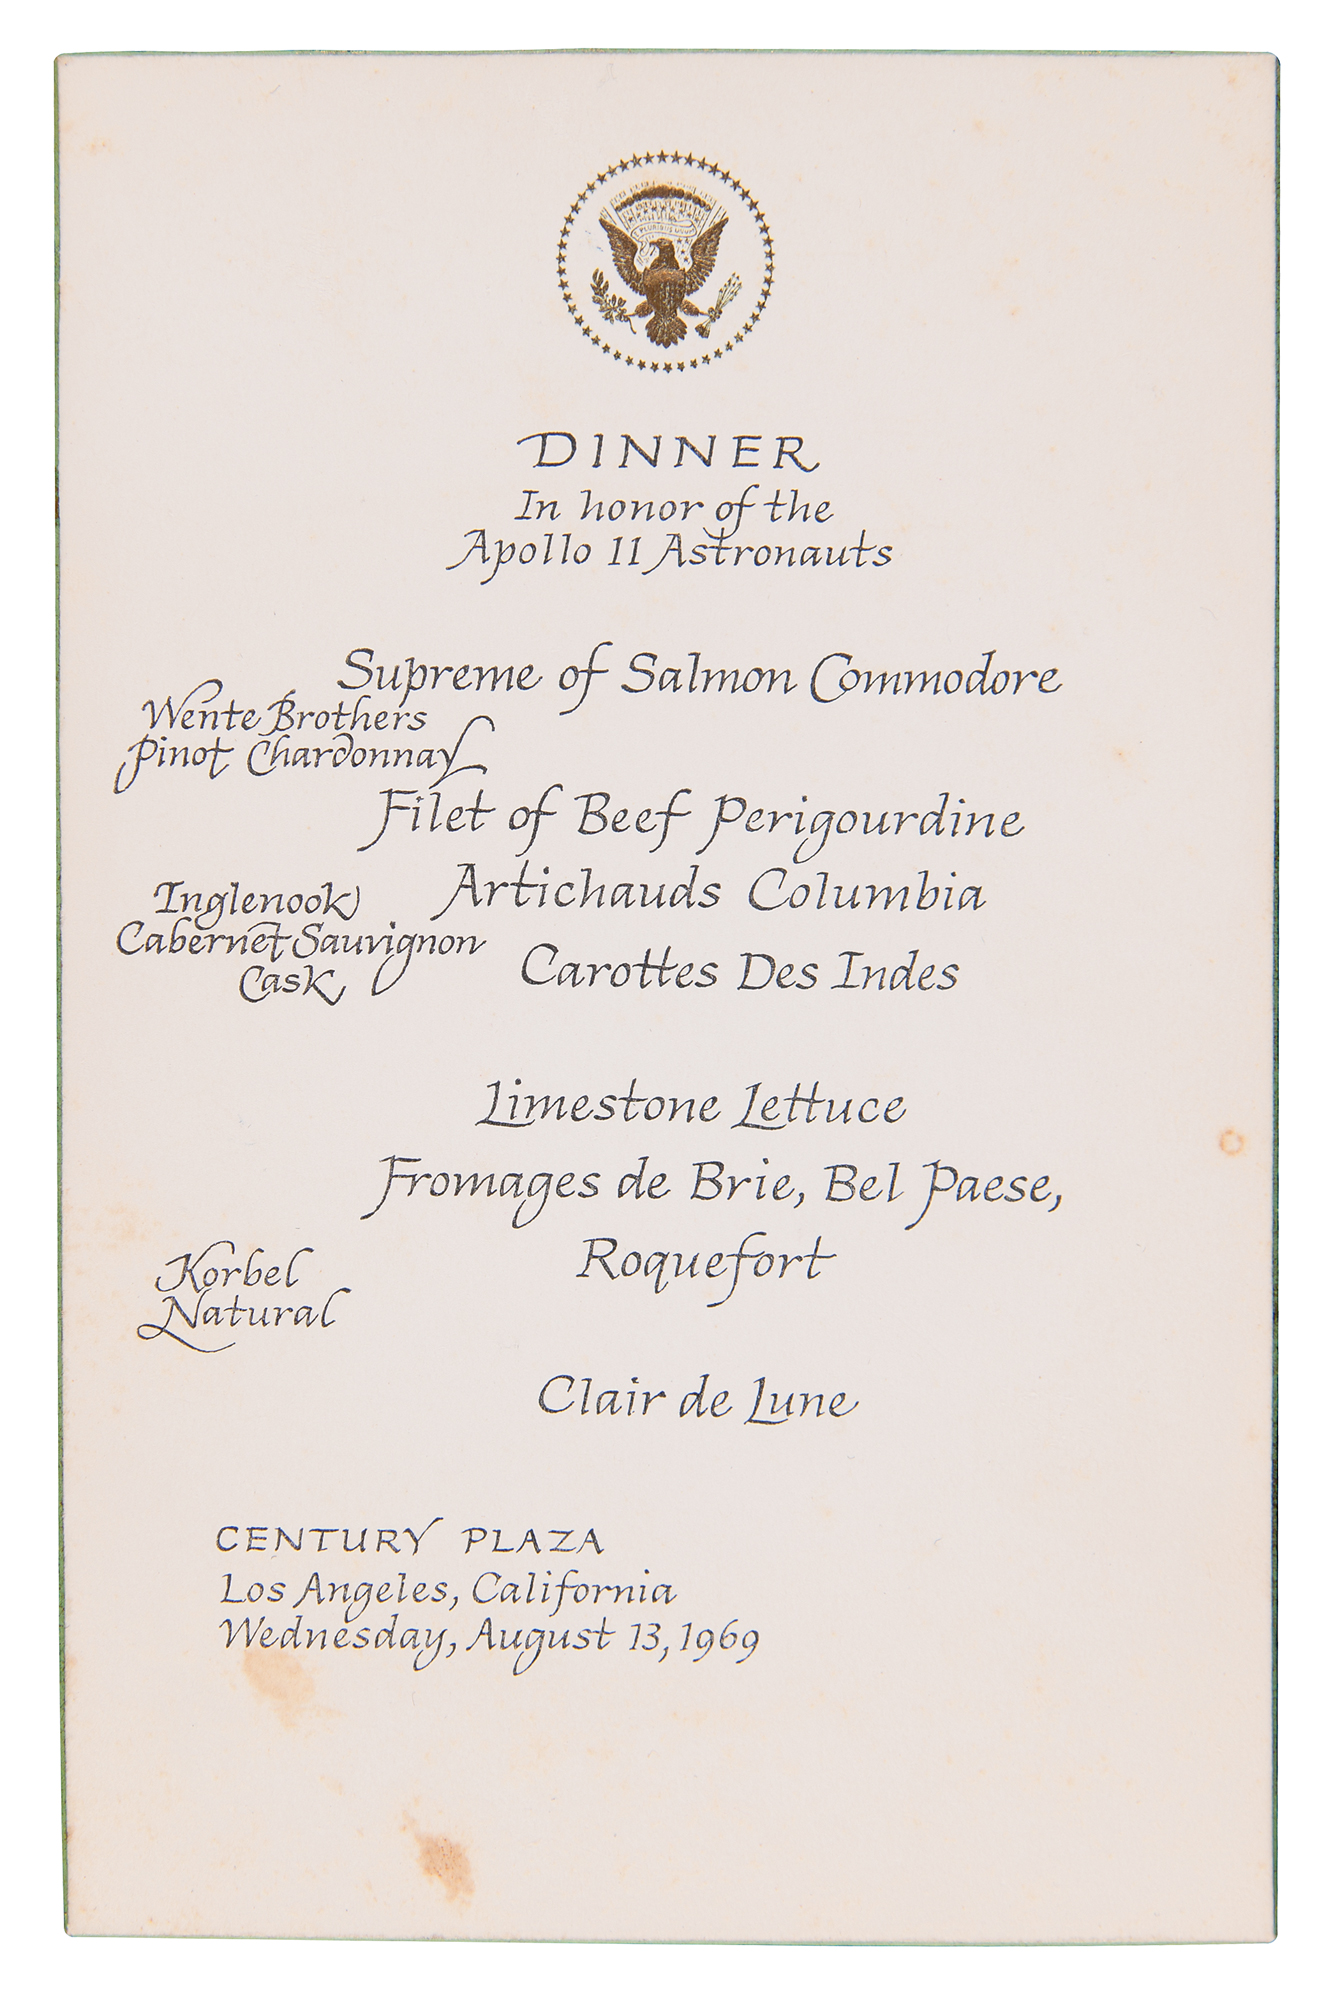 E PLURIBUS UNUM
DINNER
In honor of the
Apollo 11 Astronauts
Supreme of Salmon Commodore
Wente Brothers
Pinot Chardonnay
Filet of Beef Perigourdine
Artichauds Columbia
Inglenook
Cabernet Sauvignon
Cask
Carottes Des Indes
Limestone Lettuce
Fromages de Brie, Bel Paese,
Roquefort
Korbel
Natural
Clair de Lune
CENTURY PLAZA
Los Angeles, California
Wednesday, August 13, 1969